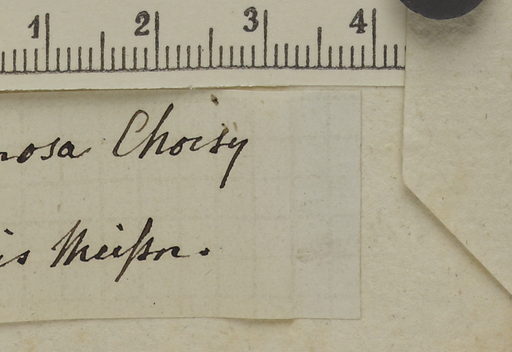 1 2 3 4
nosa Choisy
is Meißn.